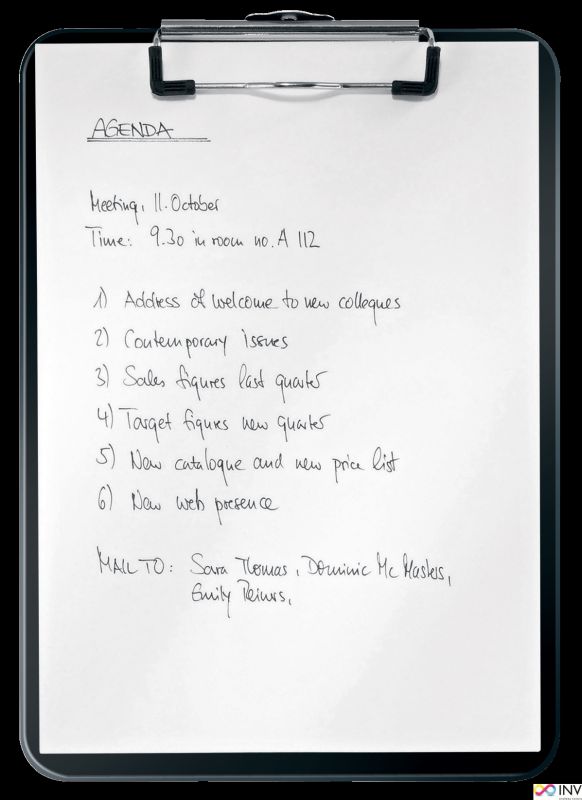 AGENDA
Meeting, 11. October
Time: 9.30 in room no. A 112
1) Address of welcome to new colleques
2) Contemporary issues
3) Sales figures last quarter
4) Target figures new quarter
5) New catalogue and new price list
6) New web presence
MAIL TO: Sara Thomas, Dominic Mc Masters,
Emily
INV